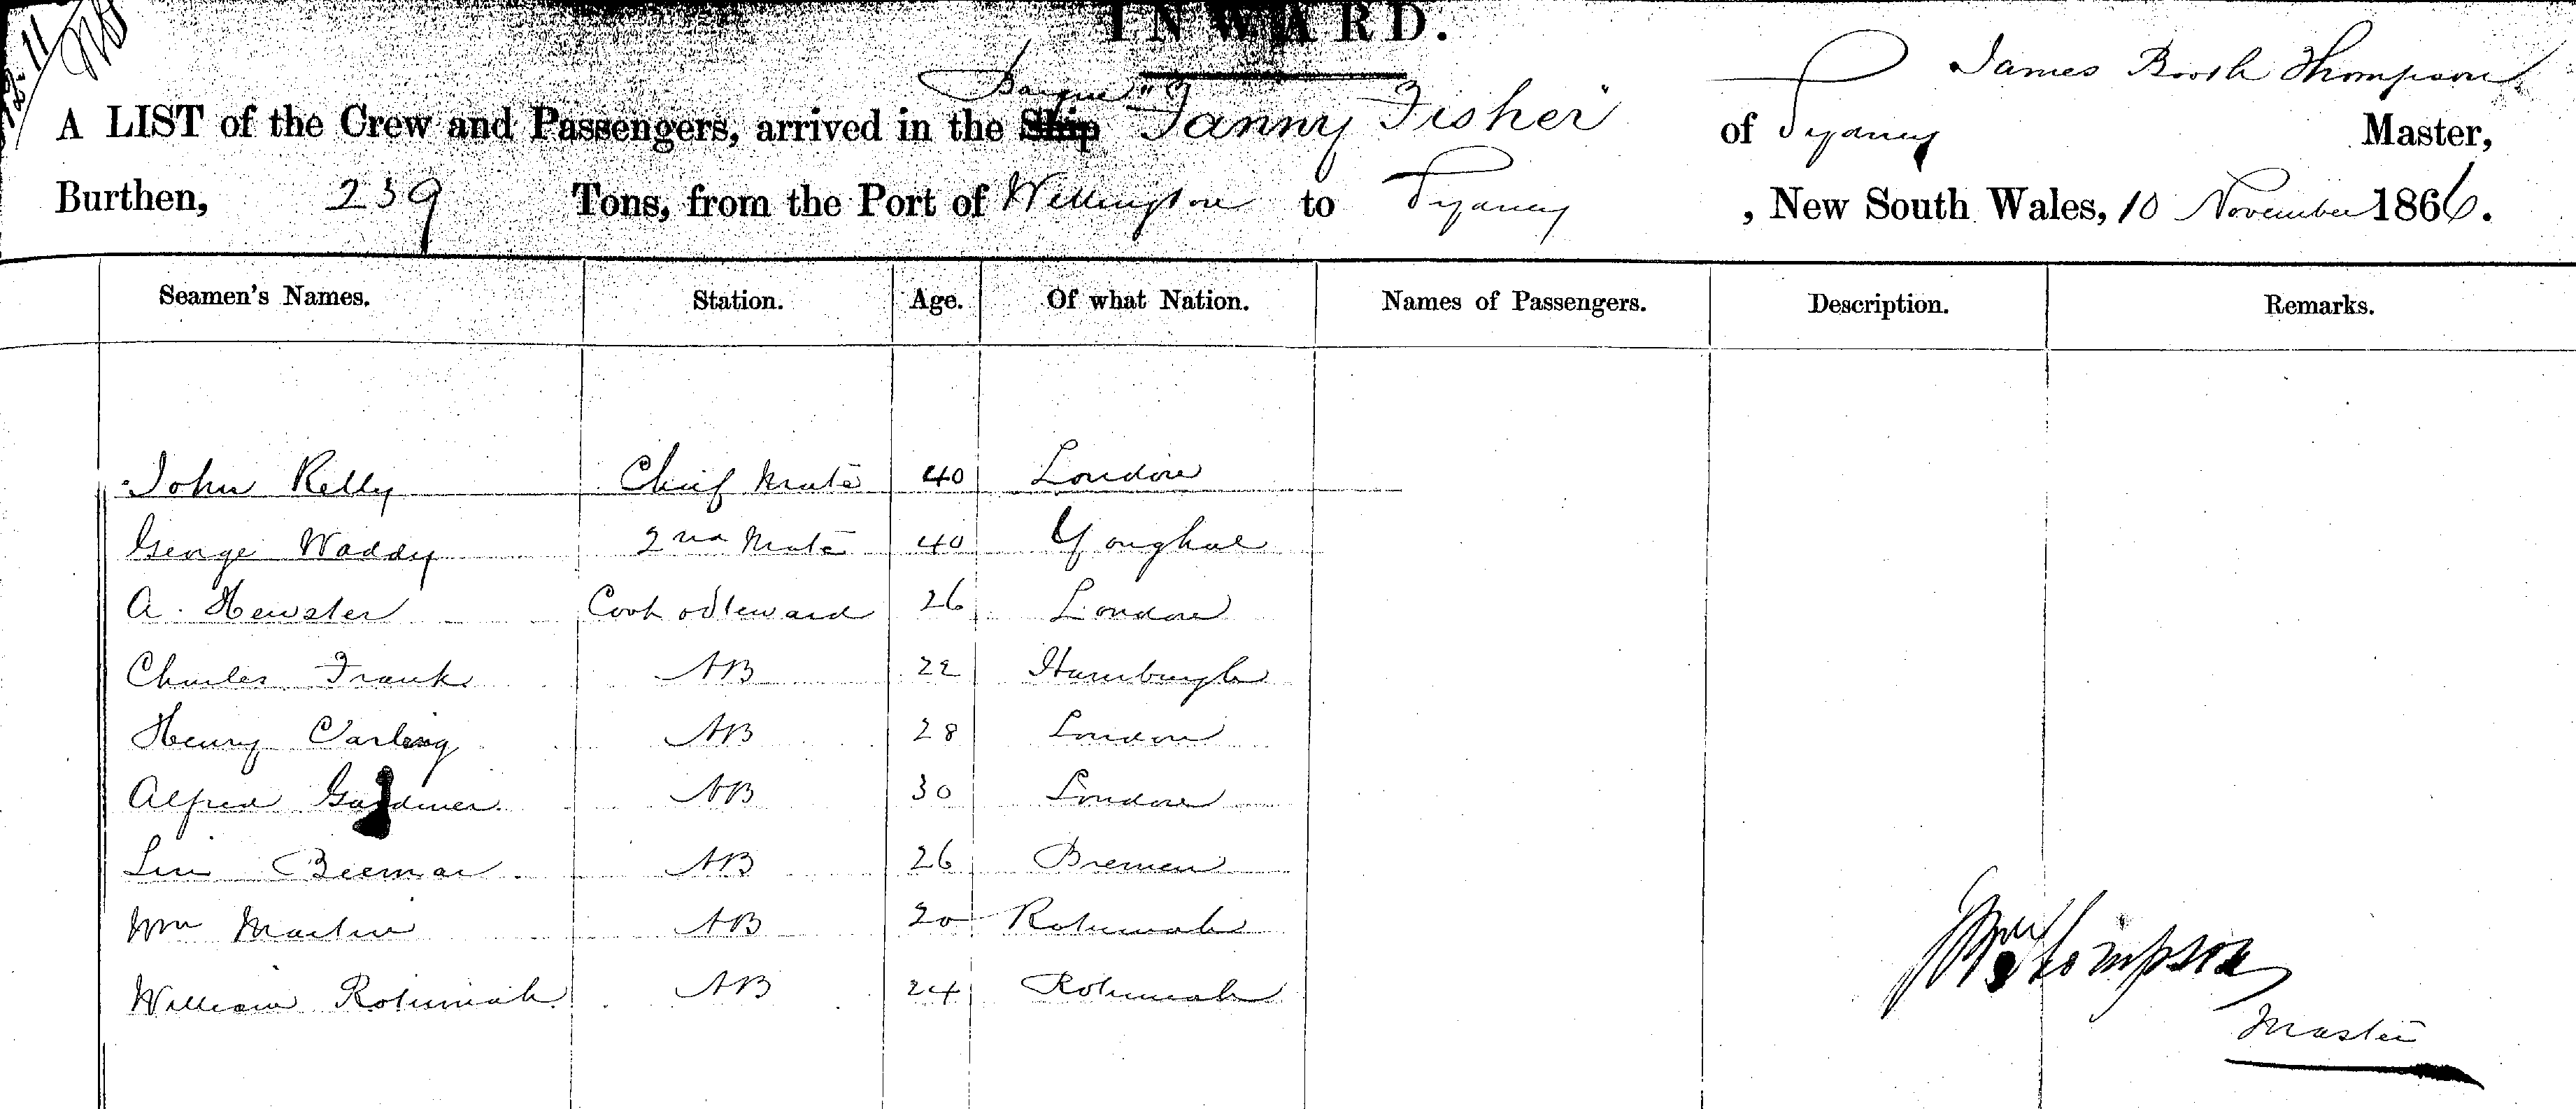 INWARD.
James Booth Thompson
A LIST of the Crew and Passengers, arrived in the Ship Barque "Fanny Fisher" of Sydney Master,
Burthen, 239 Tons, from the Port of Wellington to Sydney, New South Wales, 10 November 1866.
Seamen's Names. Station. Age. Of what Nation. Names of Passengers. Description. Remarks.
John Kelly Chief Mate 40 London
George Waddy 2nd Mate 40 Youghal
A. Hewster Cook & Steward 26 London
Charles Frank AB 22 Hamburgh
Henry Carling AB 28 London
Alfred Gardiner AB 30 London
Beeman AB 26 Bremen
Wm Martin AB 20 Rotumah
William Rotumah AB 24 Rotumah
Thompson
Master